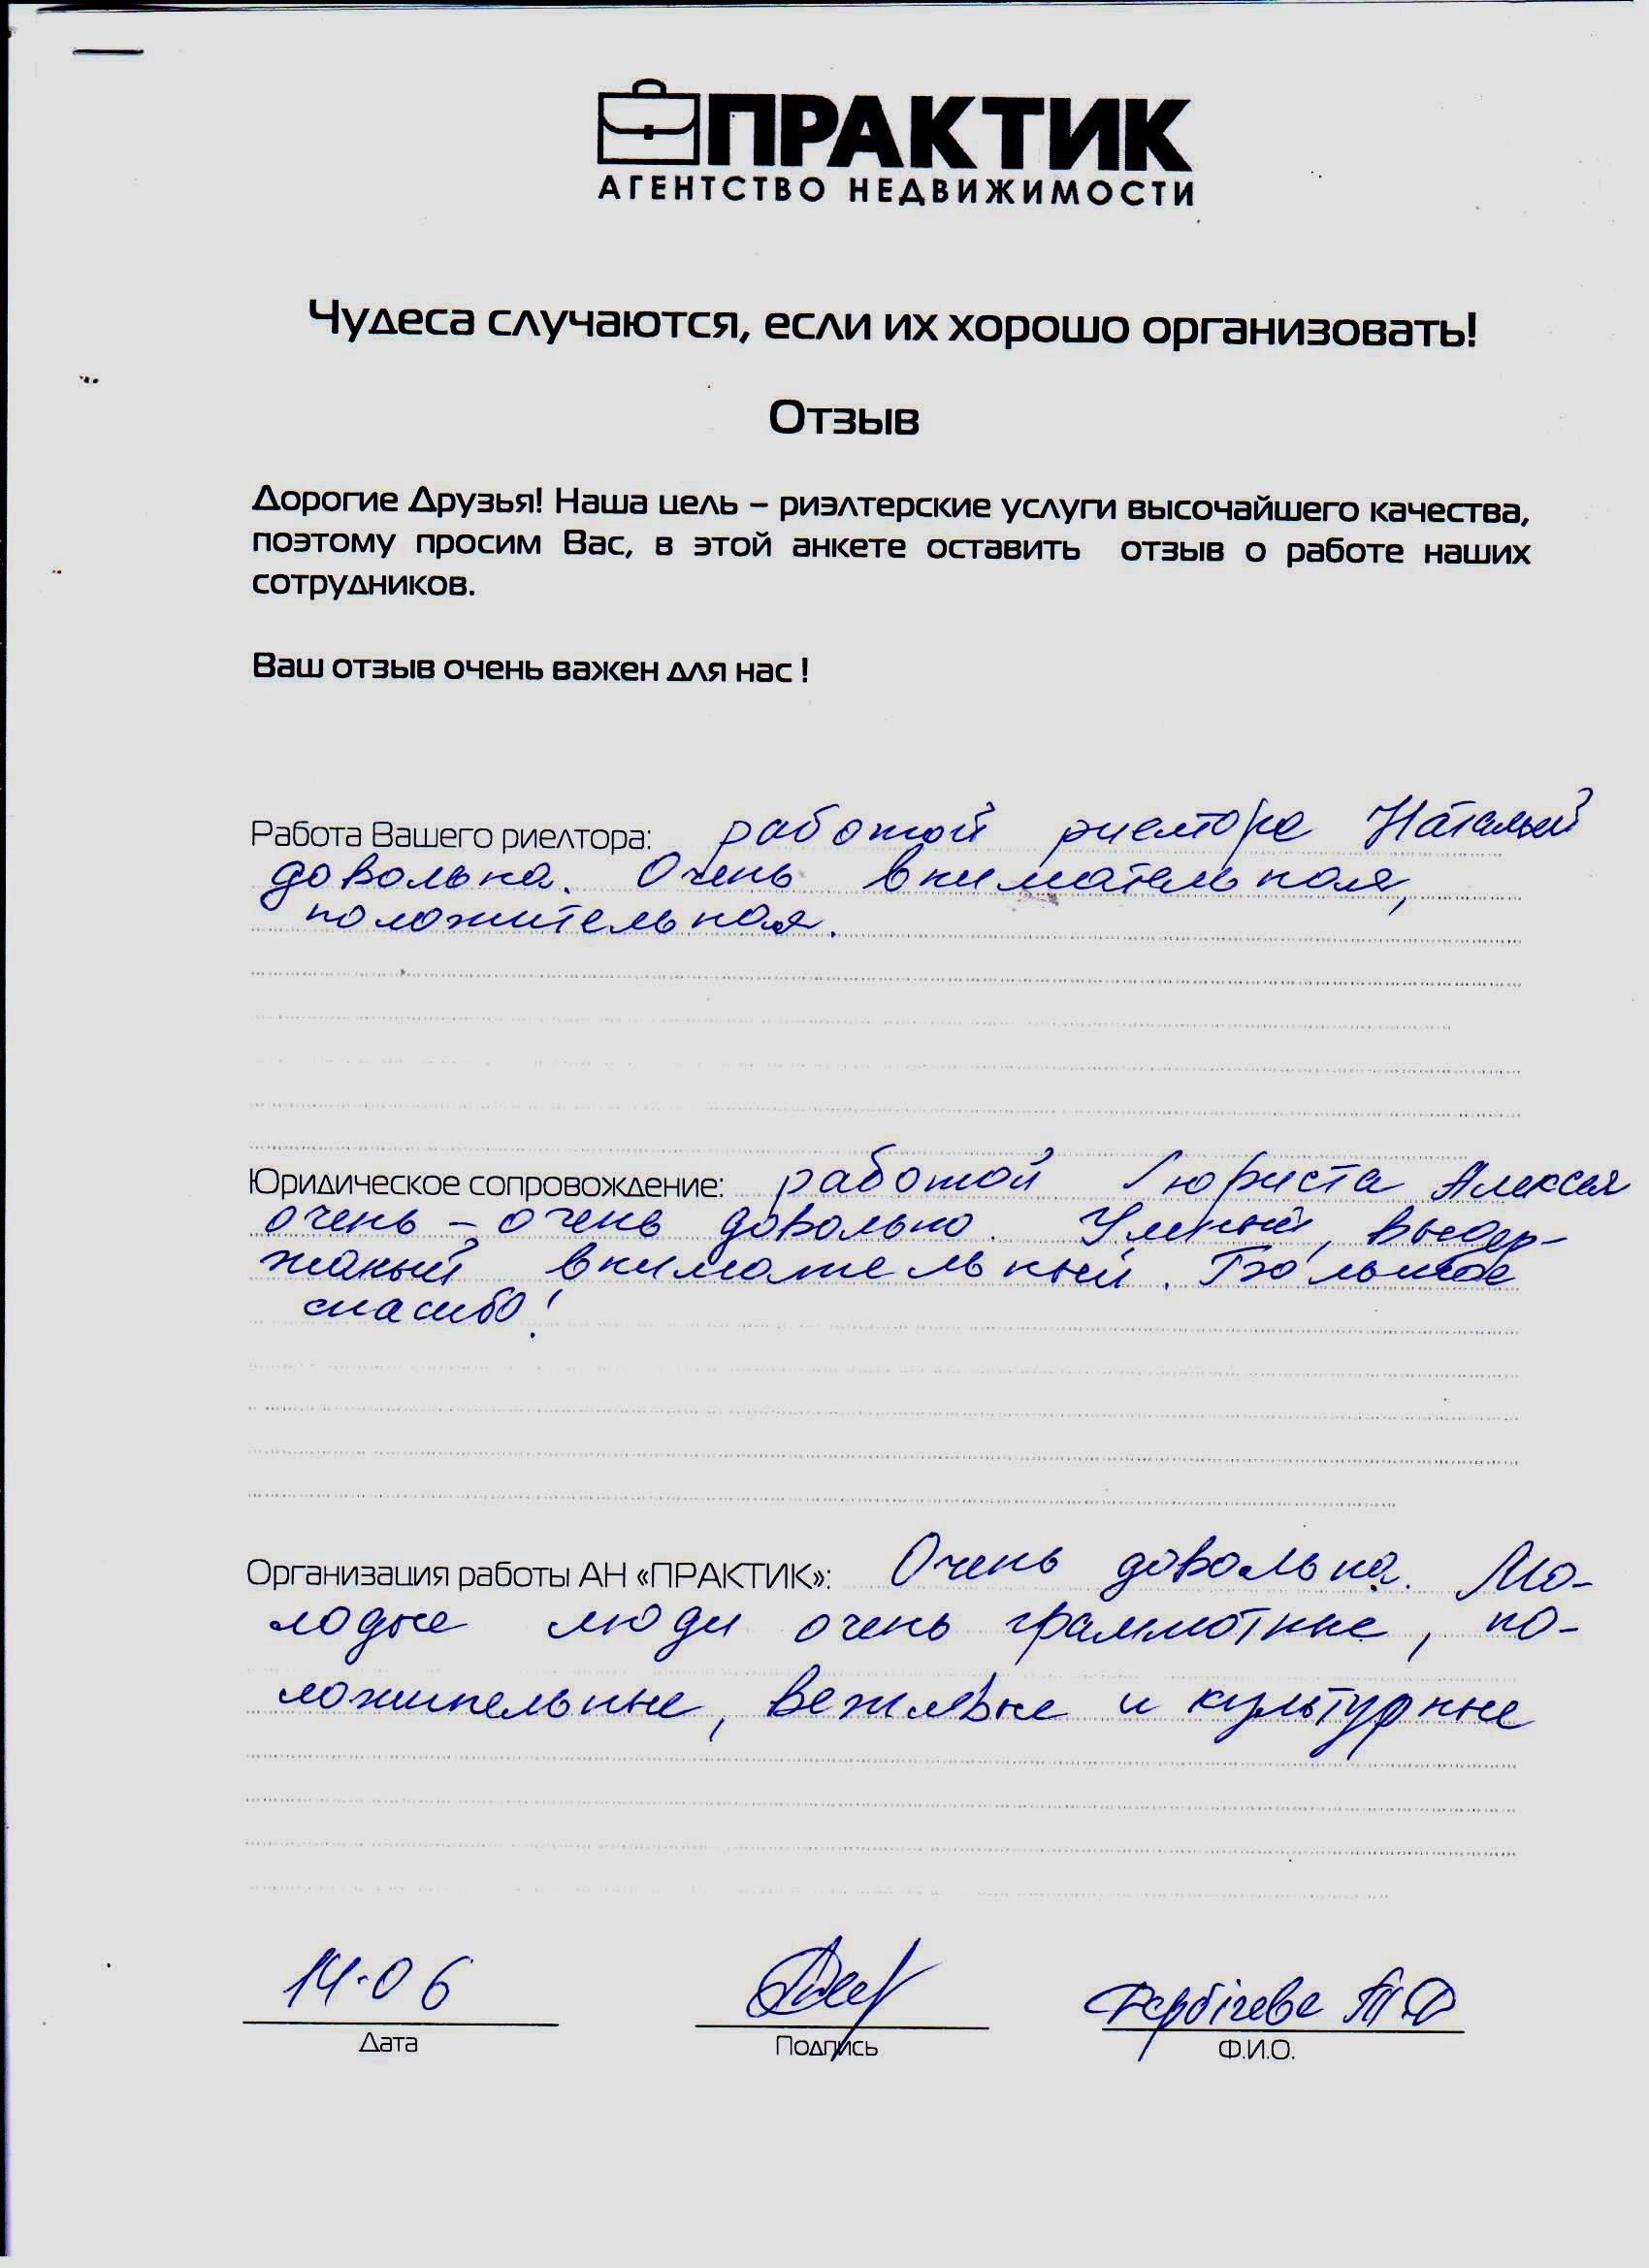 ПРАКТИК
АГЕНТСТВО НЕДВИЖИМОСТИ
Чудеса случаются, если их хорошо организовать!
Отзыв
Дорогие Друзья! Наша цель – риэлтерские услуги высочайшего качества,
поэтому просим Вас, в этой анкете оставить отзыв о работе наших
сотрудников.
Ваш отзыв очень важен для нас !
Работа Вашего риелтора: работой риелтора Натальей
довольна. Очень внимательная,
положительная.
Юридическое сопровождение: работой юриста Алексея
очень – очень довольно. Умный, выдер-
жаный внимательный. Большое
спасибо!
Организация работы АН «ПРАКТИК»: Очень довольна. Мо-
лодые люди очень грамотные, по-
ложительные, вежливые и культурные
14.06
Дата
Подпись
Ф.И.О.